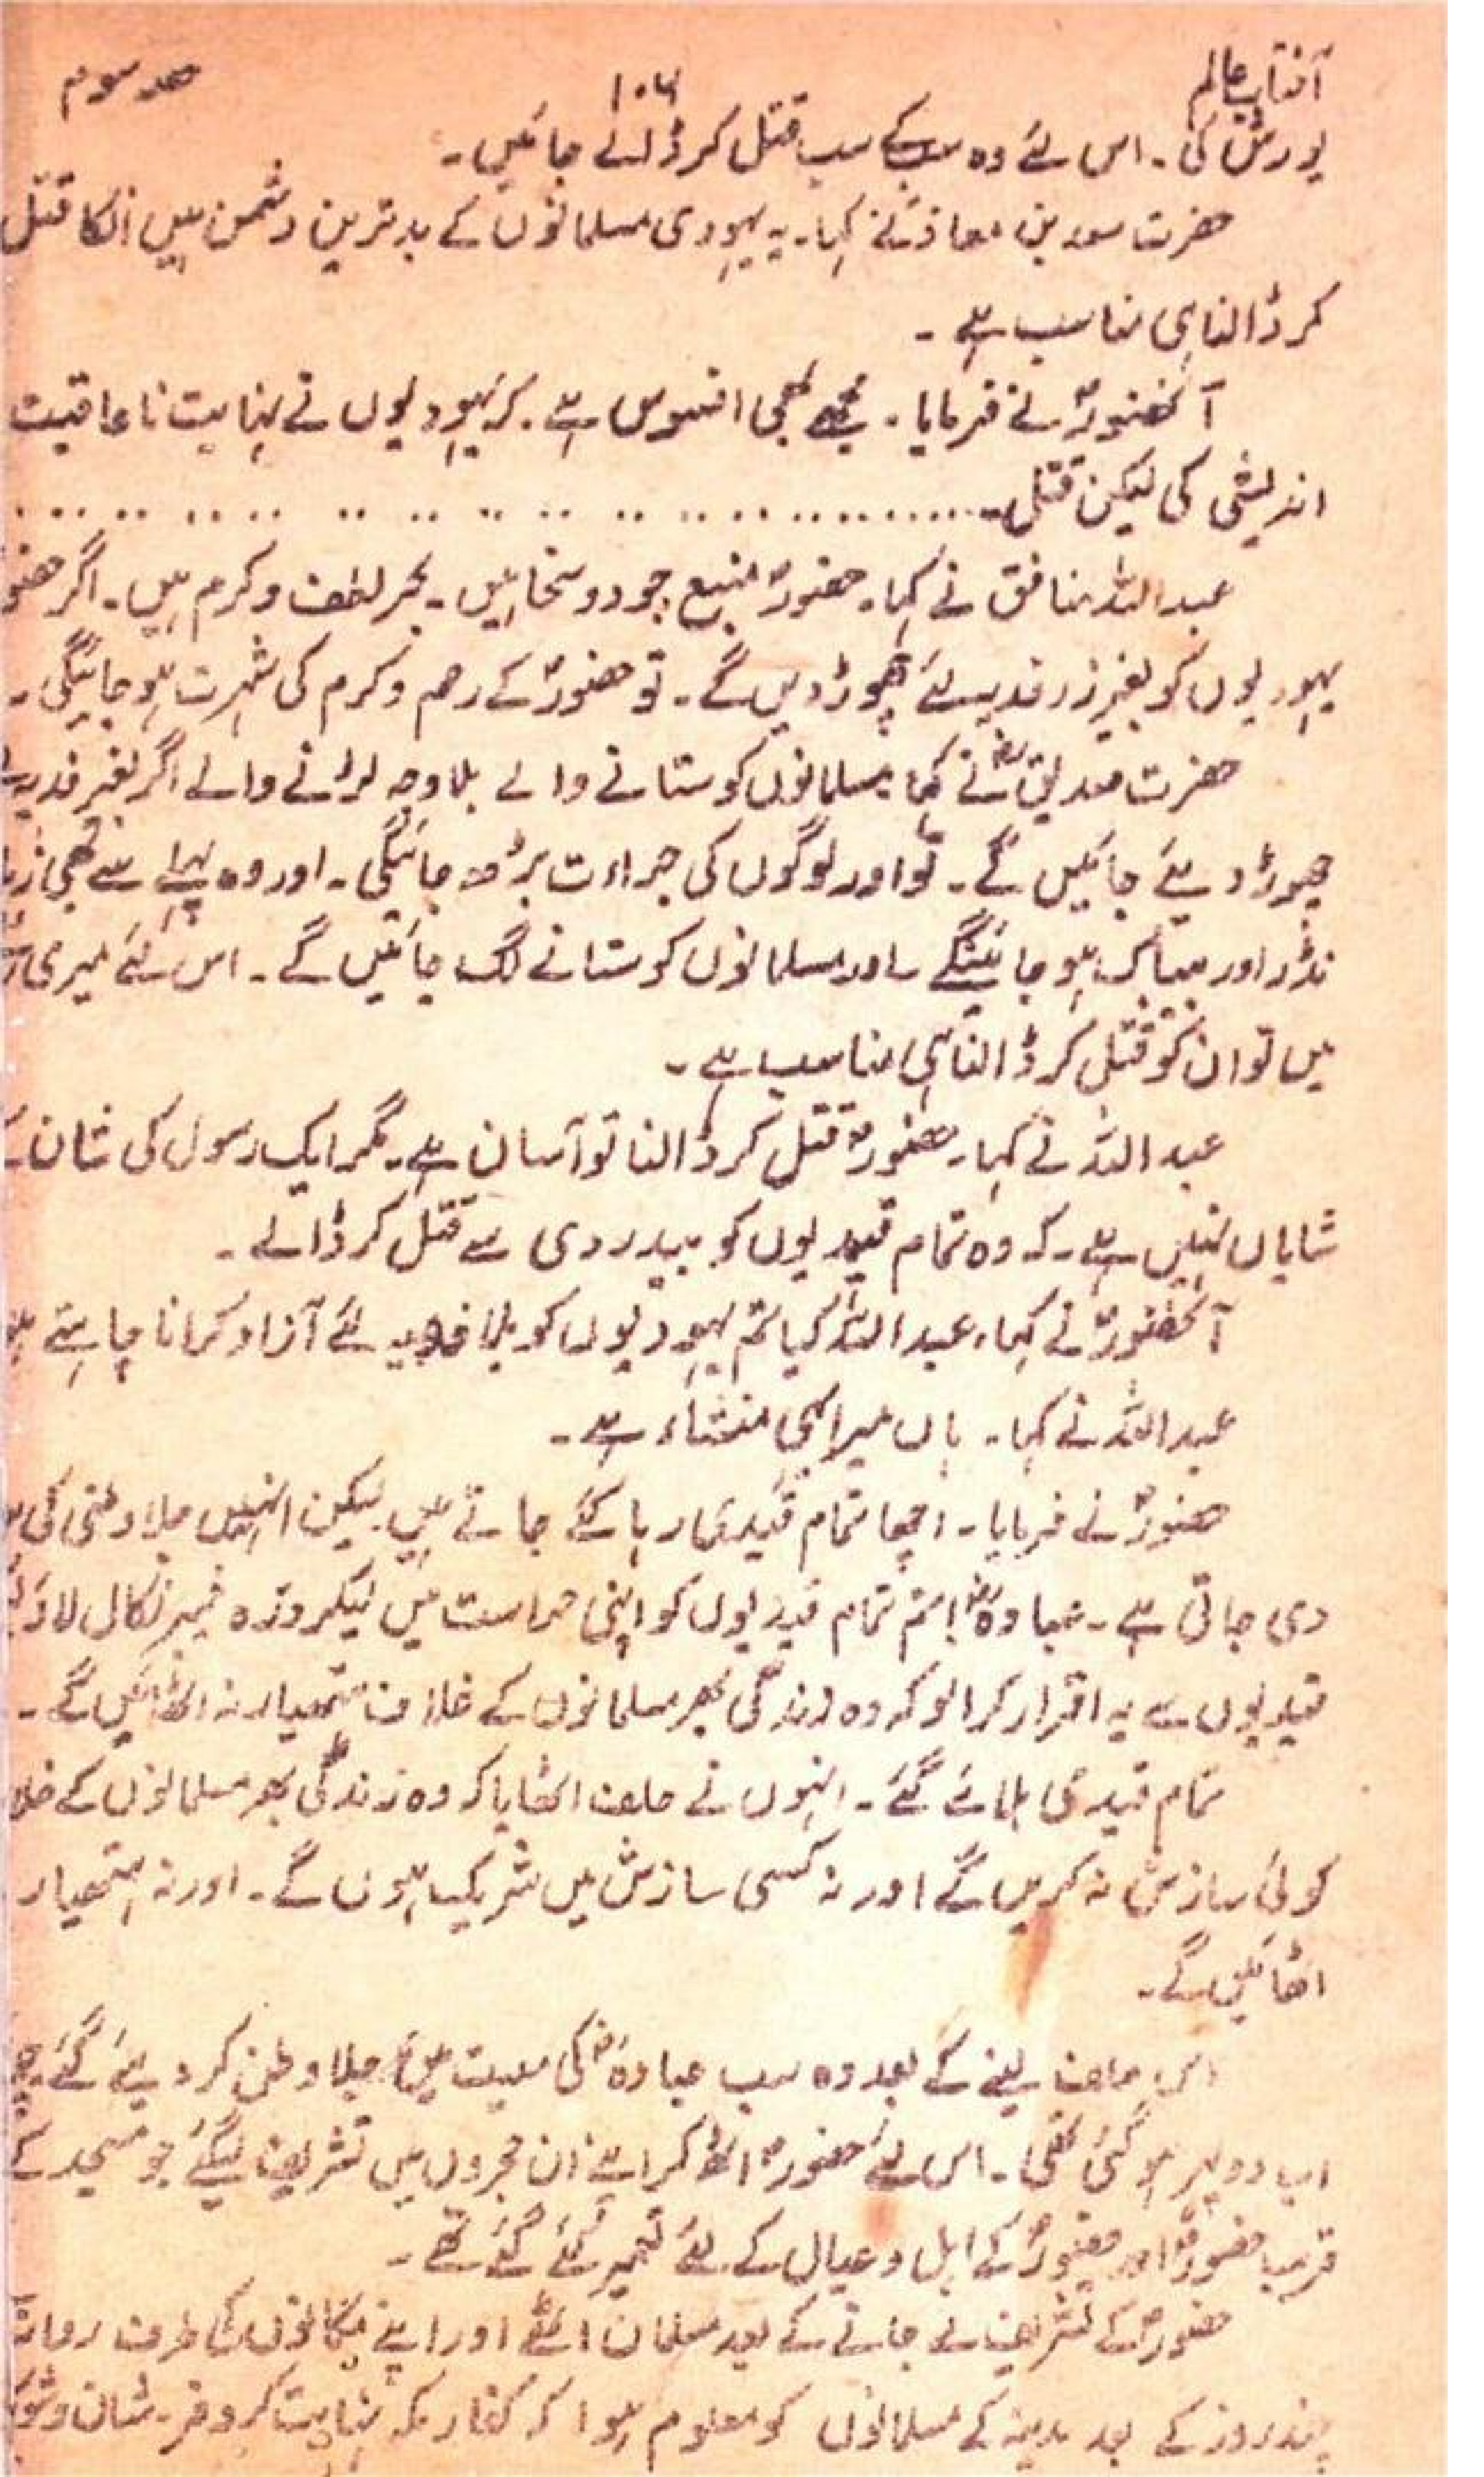 آفتاب عالم ۱۰۶ حصہ سوم
یورش کی۔ اس لئے وہ سب کے سب قتل کر ڈالے جائیں۔
حضرت سعد بن معاذؓ نے کہا۔ یہ یہودی مسلمانوں کے بدترین دشمن ہیں انکا قتل
کر ڈالنا ہی مناسب ہے۔
آنحضورؐ نے فرمایا۔ مجھے بھی افسوس ہے۔ کہ یہودیوں نے نہایت ناعاقبت
اندیشی کی لیکن قتل ............................
عبداللہ منافق نے کہا۔ حضورؐ منبع جود و سخا ہیں۔ بحر لطف و کرم ہیں۔ اگر حضو
یہودیوں کو بغیر زر فدیہ لئے چھوڑ دیں گے۔ تو حضورؐ کے رحم و کرم کی شہرت ہو جائیگی۔
حضرت صدیقؓ نے کہا مسلمانوں کو ستانے والے بلا وجہ لڑانے والے اگر بغیر فدیہ
چھوڑ دیئے جائیں گے۔ تو اور لوگوں کی جراءت بڑھ جائیگی۔ اور وہ پہلے سے بھی
نڈر اور بیباک ہو جائینگے۔ اور مسلمانوں کو ستانے لگ جائیں گے۔ اس لئے میری
میں تو ان کو قتل کر ڈالنا ہی مناسب ہے۔
عبداللہ نے کہا۔ حضورؐ قتل کر ڈالنا تو آسان ہے۔ مگر ایک رسول کی شان
شایاں نہیں ہے۔ کہ وہ تمام قیدیوں کو بیدردی سے قتل کر ڈالے۔
آنحضورؐ نے کہا، عبداللہ کیا تم یہودیوں کو بلا فدیہ لئے آزاد کرانا چاہتے
عبداللہ نے کہا۔ ہاں میرا یہی منشاء ہے۔
حضورؐ نے فرمایا۔ اچھا تمام قیدی رہا کئے جاتے ہیں۔ لیکن انہیں جلا وطنی کی
دی جاتی ہے۔ عبادہؓ! تم تمام قیدیوں کو اپنی حراست میں لیکر خیبر نکال لاؤ
قیدیوں سے یہ اقرار کرا لو کہ وہ زندگی بھر مسلمانوں کے خلاف ہتھیار نہ اٹھائیں گے۔
تمام قیدی بلائے گئے۔ انہوں نے حلف اٹھایا کہ وہ زندگی بھر مسلمانوں کے خلا
کوئی سازش نہ کریں گے اور نہ کسی سازش میں شریک ہوں گے۔ اور نہ ہتھیار
اٹھائیں گے۔
اس حلف لینے کے بعد وہ سب عبادہؓ کی معیت میں جلا وطن کر دیئے گئے۔
اب دوپہر ہو گئی تھی۔ اس لئے حضورؐ اٹھ کر اپنے ان حجروں میں تشریف لیگئے جو مسجد کے
قریب حضورؐ اور حضورؐ کے اہل و عیال کے لئے تعمیر کئے گئے تھے۔
حضورؐ کے تشریف لے جانے کے بعد مسلمان اٹھے اور اپنے مکانوں کی طرف روانہ
چند روز کے بعد مدینہ کے مسلمانوں کو معلوم ہوا کہ کفار مکہ نہایت کر و فر۔ شان و شو